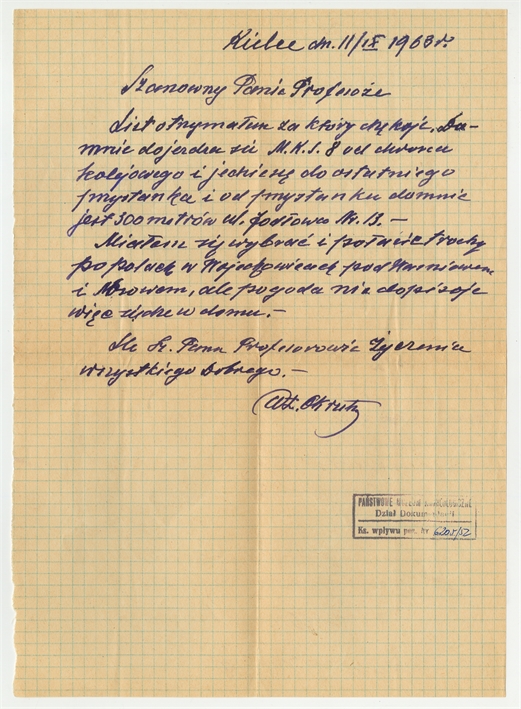 Kielce dn. 11/IX 1963 r.
Szanowny Panie Profesoże
List otrymałem za który dziękuje, Do-
mnie dojezdża się M.K.S. 8 od dworca
kolejowego i jedzie się do ostatniego
przystanku i od przystanku domnie
jest 300 metrów ul. Jodłowa Nr. 13. –
Miałem się wybrać i połazić trochę
po polach w Wojciechowicach pod
i, ale pogoda nie dopisuje
więc siedze w domu. –
Dla Sz. Pana Profesorowia Życzenia
wszystkiego Dobrego. –
PAŃSTWOWE MUZEUM ARCHEOLOGICZNE
Dział Dokumentacji
Ks. wpływu poz. Nr